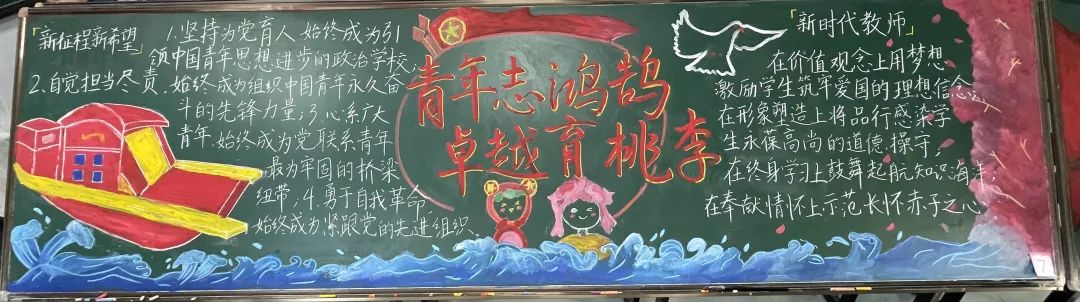 「新征程新希望」
1.坚持为党育人,始终成为引
领中国青年思想进步的政治学校,
2.自觉担当尽责,始终成为组织中国青年永久奋
斗的先锋力量;3.心系广大
青年,始终成为党联系青年
最为牢固的桥梁
纽带,4.勇于自我革命
始终成为紧跟党的先进组织.
青年志鸿鹄
卓越育桃李
「新时代教师」
在价值观念上用梦想
激励学生筑牢爱国的理想信念;
在形象塑造上将品行感染学
生永葆高尚的道德操守;
在终身学习上鼓舞起航知识海洋;
在奉献情怀上示范长怀赤子之心。
7